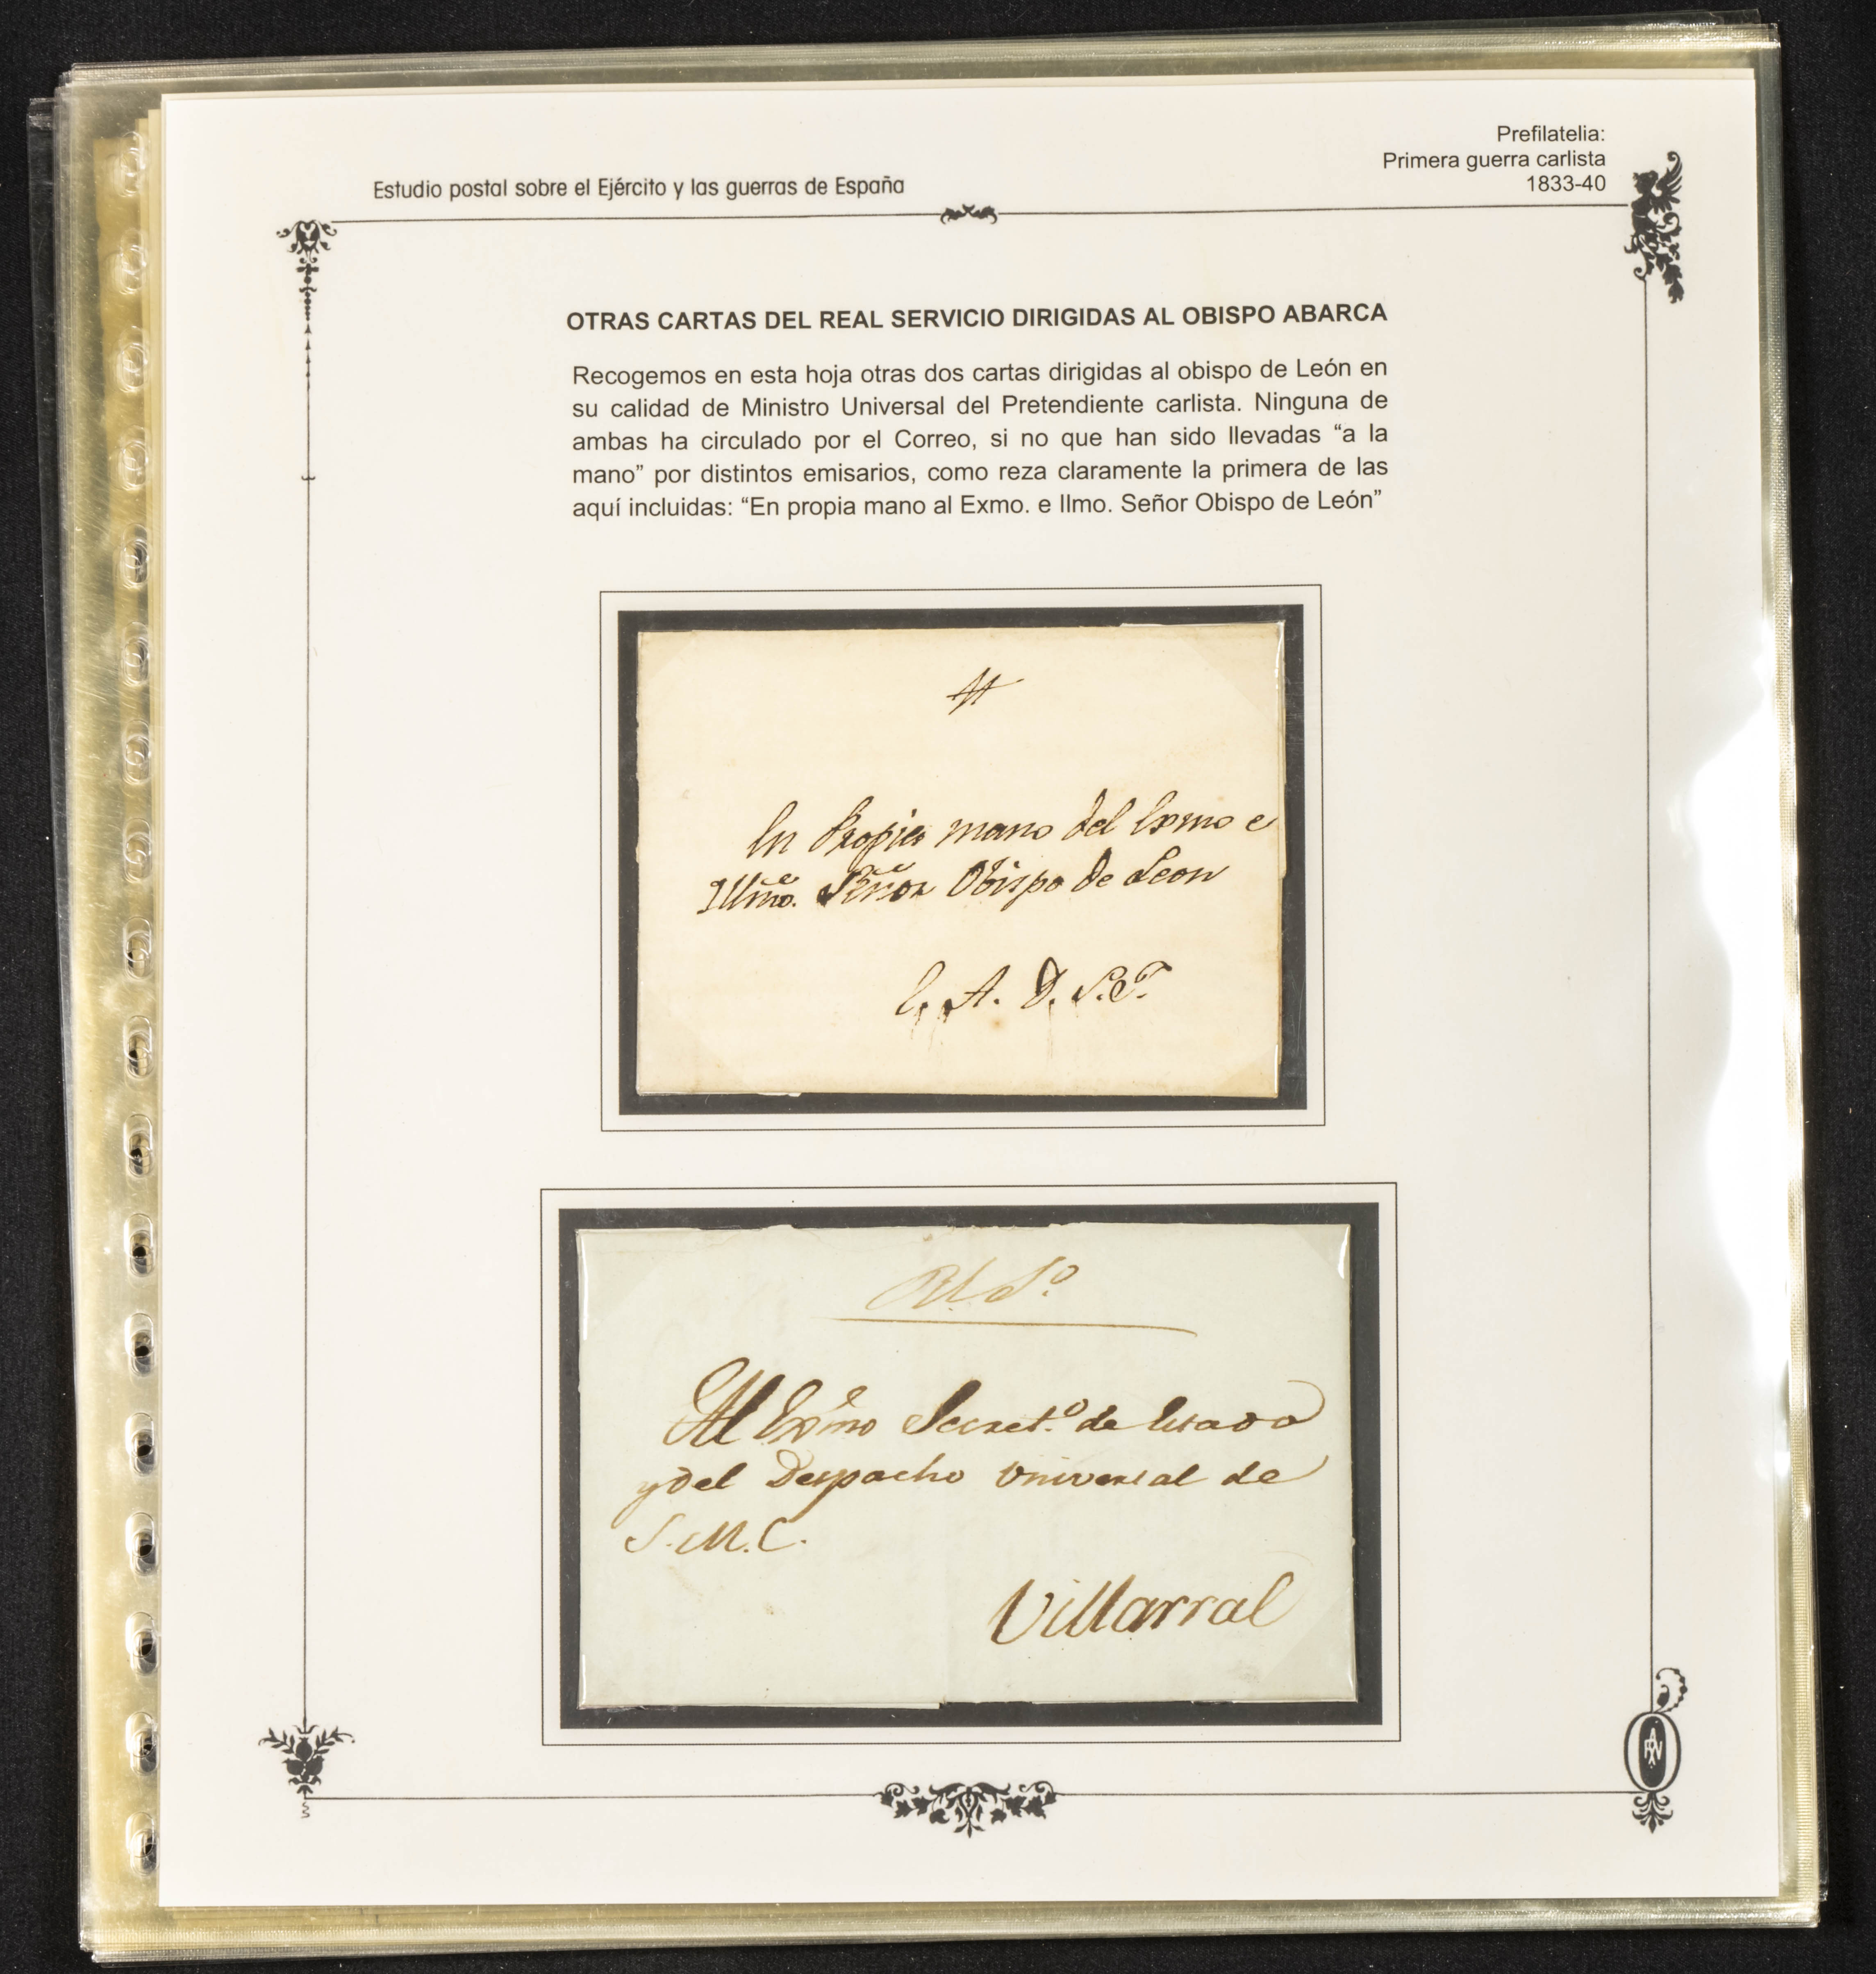 Prefilatelia:
Primera guerra carlista
1833-40
Estudio postal sobre el Ejército y las guerras de España
OTRAS CARTAS DEL REAL SERVICIO DIRIGIDAS AL OBISPO ABARCA
Recogemos en esta hoja otras dos cartas dirigidas al obispo de León en
su calidad de Ministro Universal del Pretendiente carlista. Ninguna de
ambas ha circulado por el Correo, si no que han sido llevadas “a la
mano” por distintos emisarios, como reza claramente la primera de las
aquí incluidas: “En propia mano al Exmo. e Ilmo. Señor Obispo de León”
En Propia mano del Exmo e
Illmo. Señor Obispo de Leon
E. A. D. S. T.
Rl. So.
Al Exmo Secreto. de Estado
y del Despacho Universal de
S.M.C.
Villarral